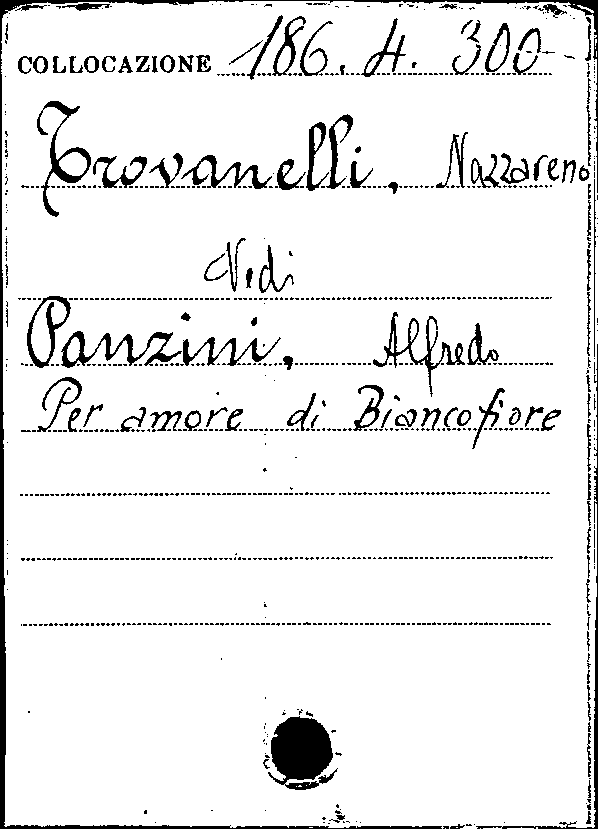 COLLOCAZIONE 186. 4. 300
Trovanelli, Nazzareno
Vedi
Panzini, Alfredo
Per amore di Biancofiore